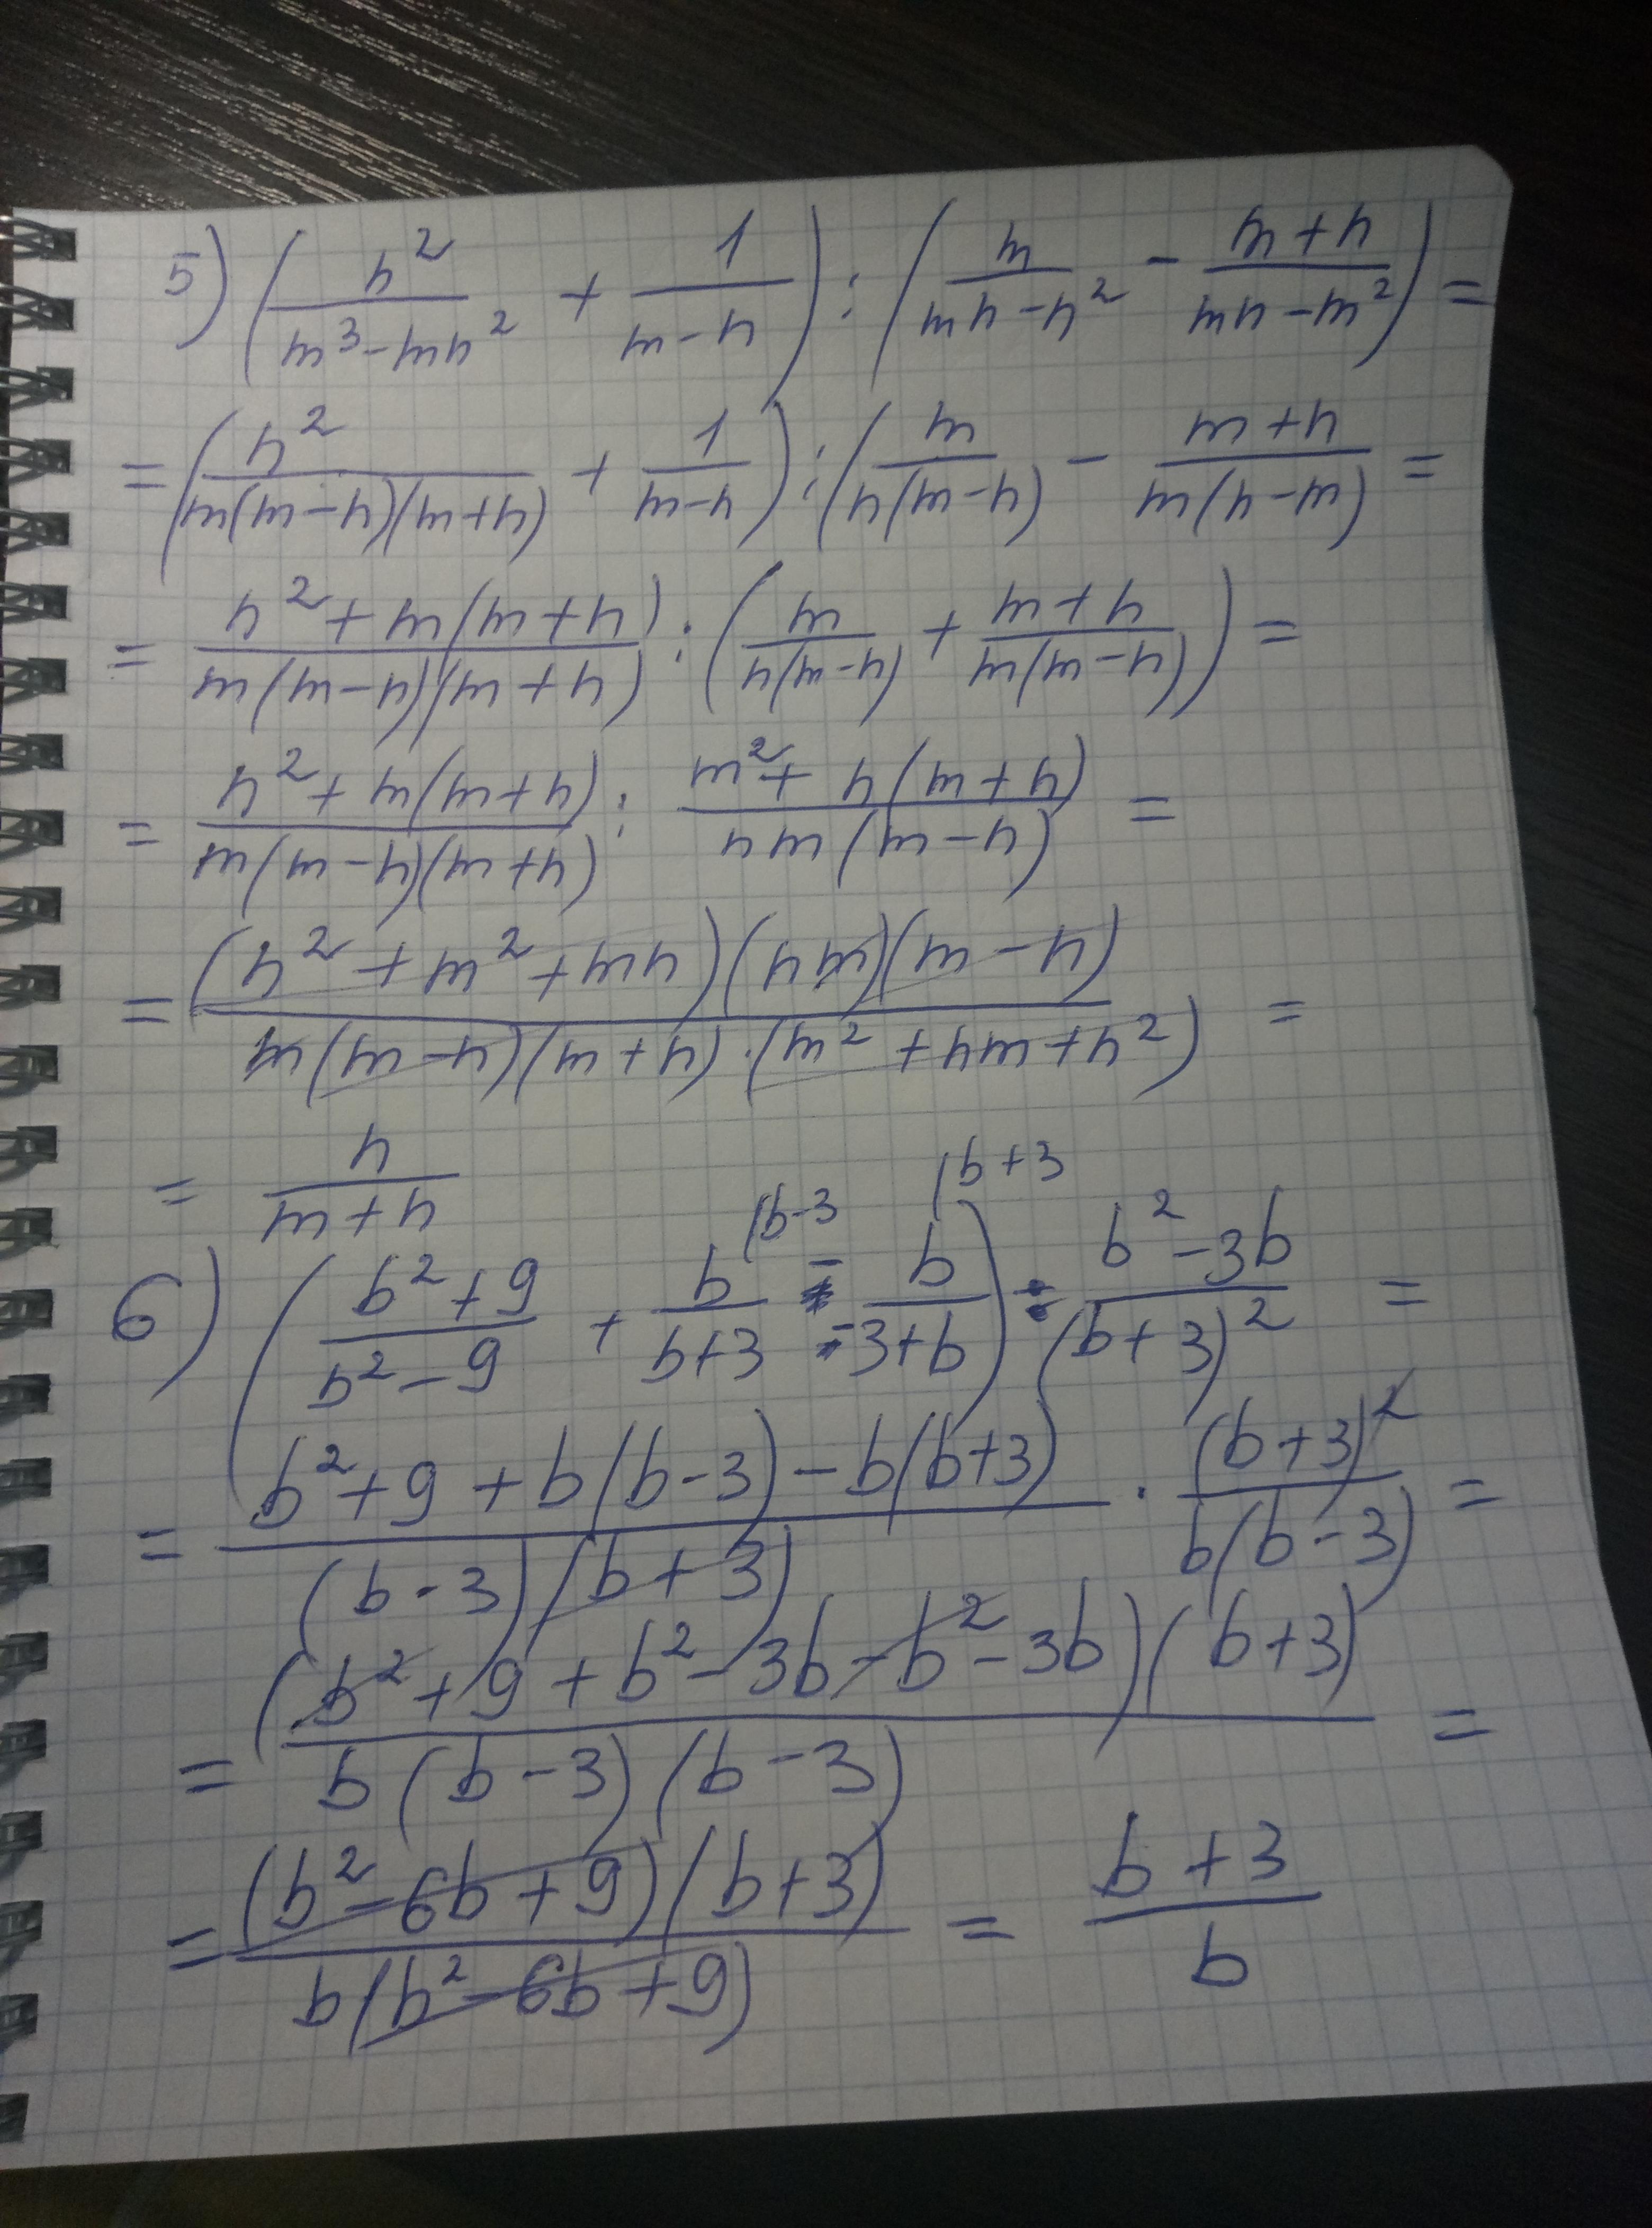 5) (n²/(m³-mn²) + 1/(m-n)) : (m/(mn-n²) - (m+n)/(mn-m²)) =
= (n²/(m(m-n)(m+n)) + 1/(m-n)) : (m/(n(m-n)) - (m+n)/(m(n-m)) =
= (n²+m(m+n))/(m(m-n)(m+n)) : (m/(n(m-n)) + (m+n)/(m(m-n))) =
= (n²+m(m+n))/(m(m-n)(m+n)) : (m²+n(m+n))/(nm(m-n)) =
= (n²+m²+mn)(nm)(m-n)/(m(m-n)(m+n)·(m²+nm+n²)) =
= n/(m+n)
6) ((b²+9)/(b²-9) + b/(b+3) (b-3 - b/(-3+b) (b+3) : (b²-3b)/(b+3)² =
= (b²+9+b(b-3)-b(b+3))/((b-3)(b+3)) · (b+3)²/(b(b-3)) =
= (b²+9+b²-3b-b²-3b)(b+3)/(b(b-3)(b-3)) =
= (b²-6b+9)(b+3)/(b(b²-6b+9)) = (b+3)/b